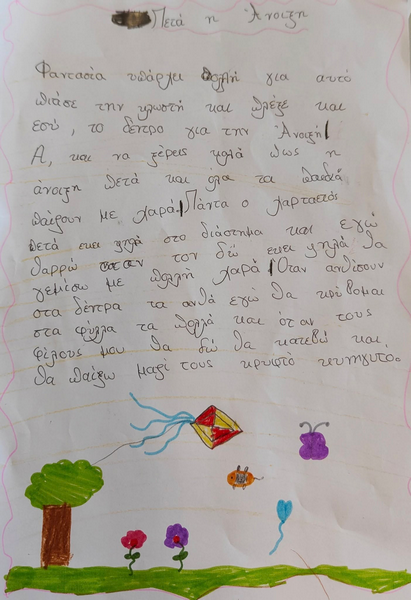 Πετά η Άνοιξη
Φαντασία υπάρχει πολλή για αυτό
πιάσε την κλωστή και πλέξε και
εσύ, το δέντρο για την Άνοιξη!
Α, και να ξέρεις καλά πως η
άνοιξη πετά και όλα τα παιδιά
παίζουν με χαρά! Πάντα ο χαρταετός
πετά εκει ψηλά στο διάστημα και εγώ
θαρρώ τον δώ εκει ψηλά θα
γεμίσω με πολλή χαρά! Όταν ανθίσουν
στα δέντρα τα ανθά εγώ θα κρίβομαι
στα φύλλα τα πολλά και όταν τους
φίλους μου θα δώ θα κατεβώ και
θα παίξω μαζί τους κρυφτό κυνηγυτο.